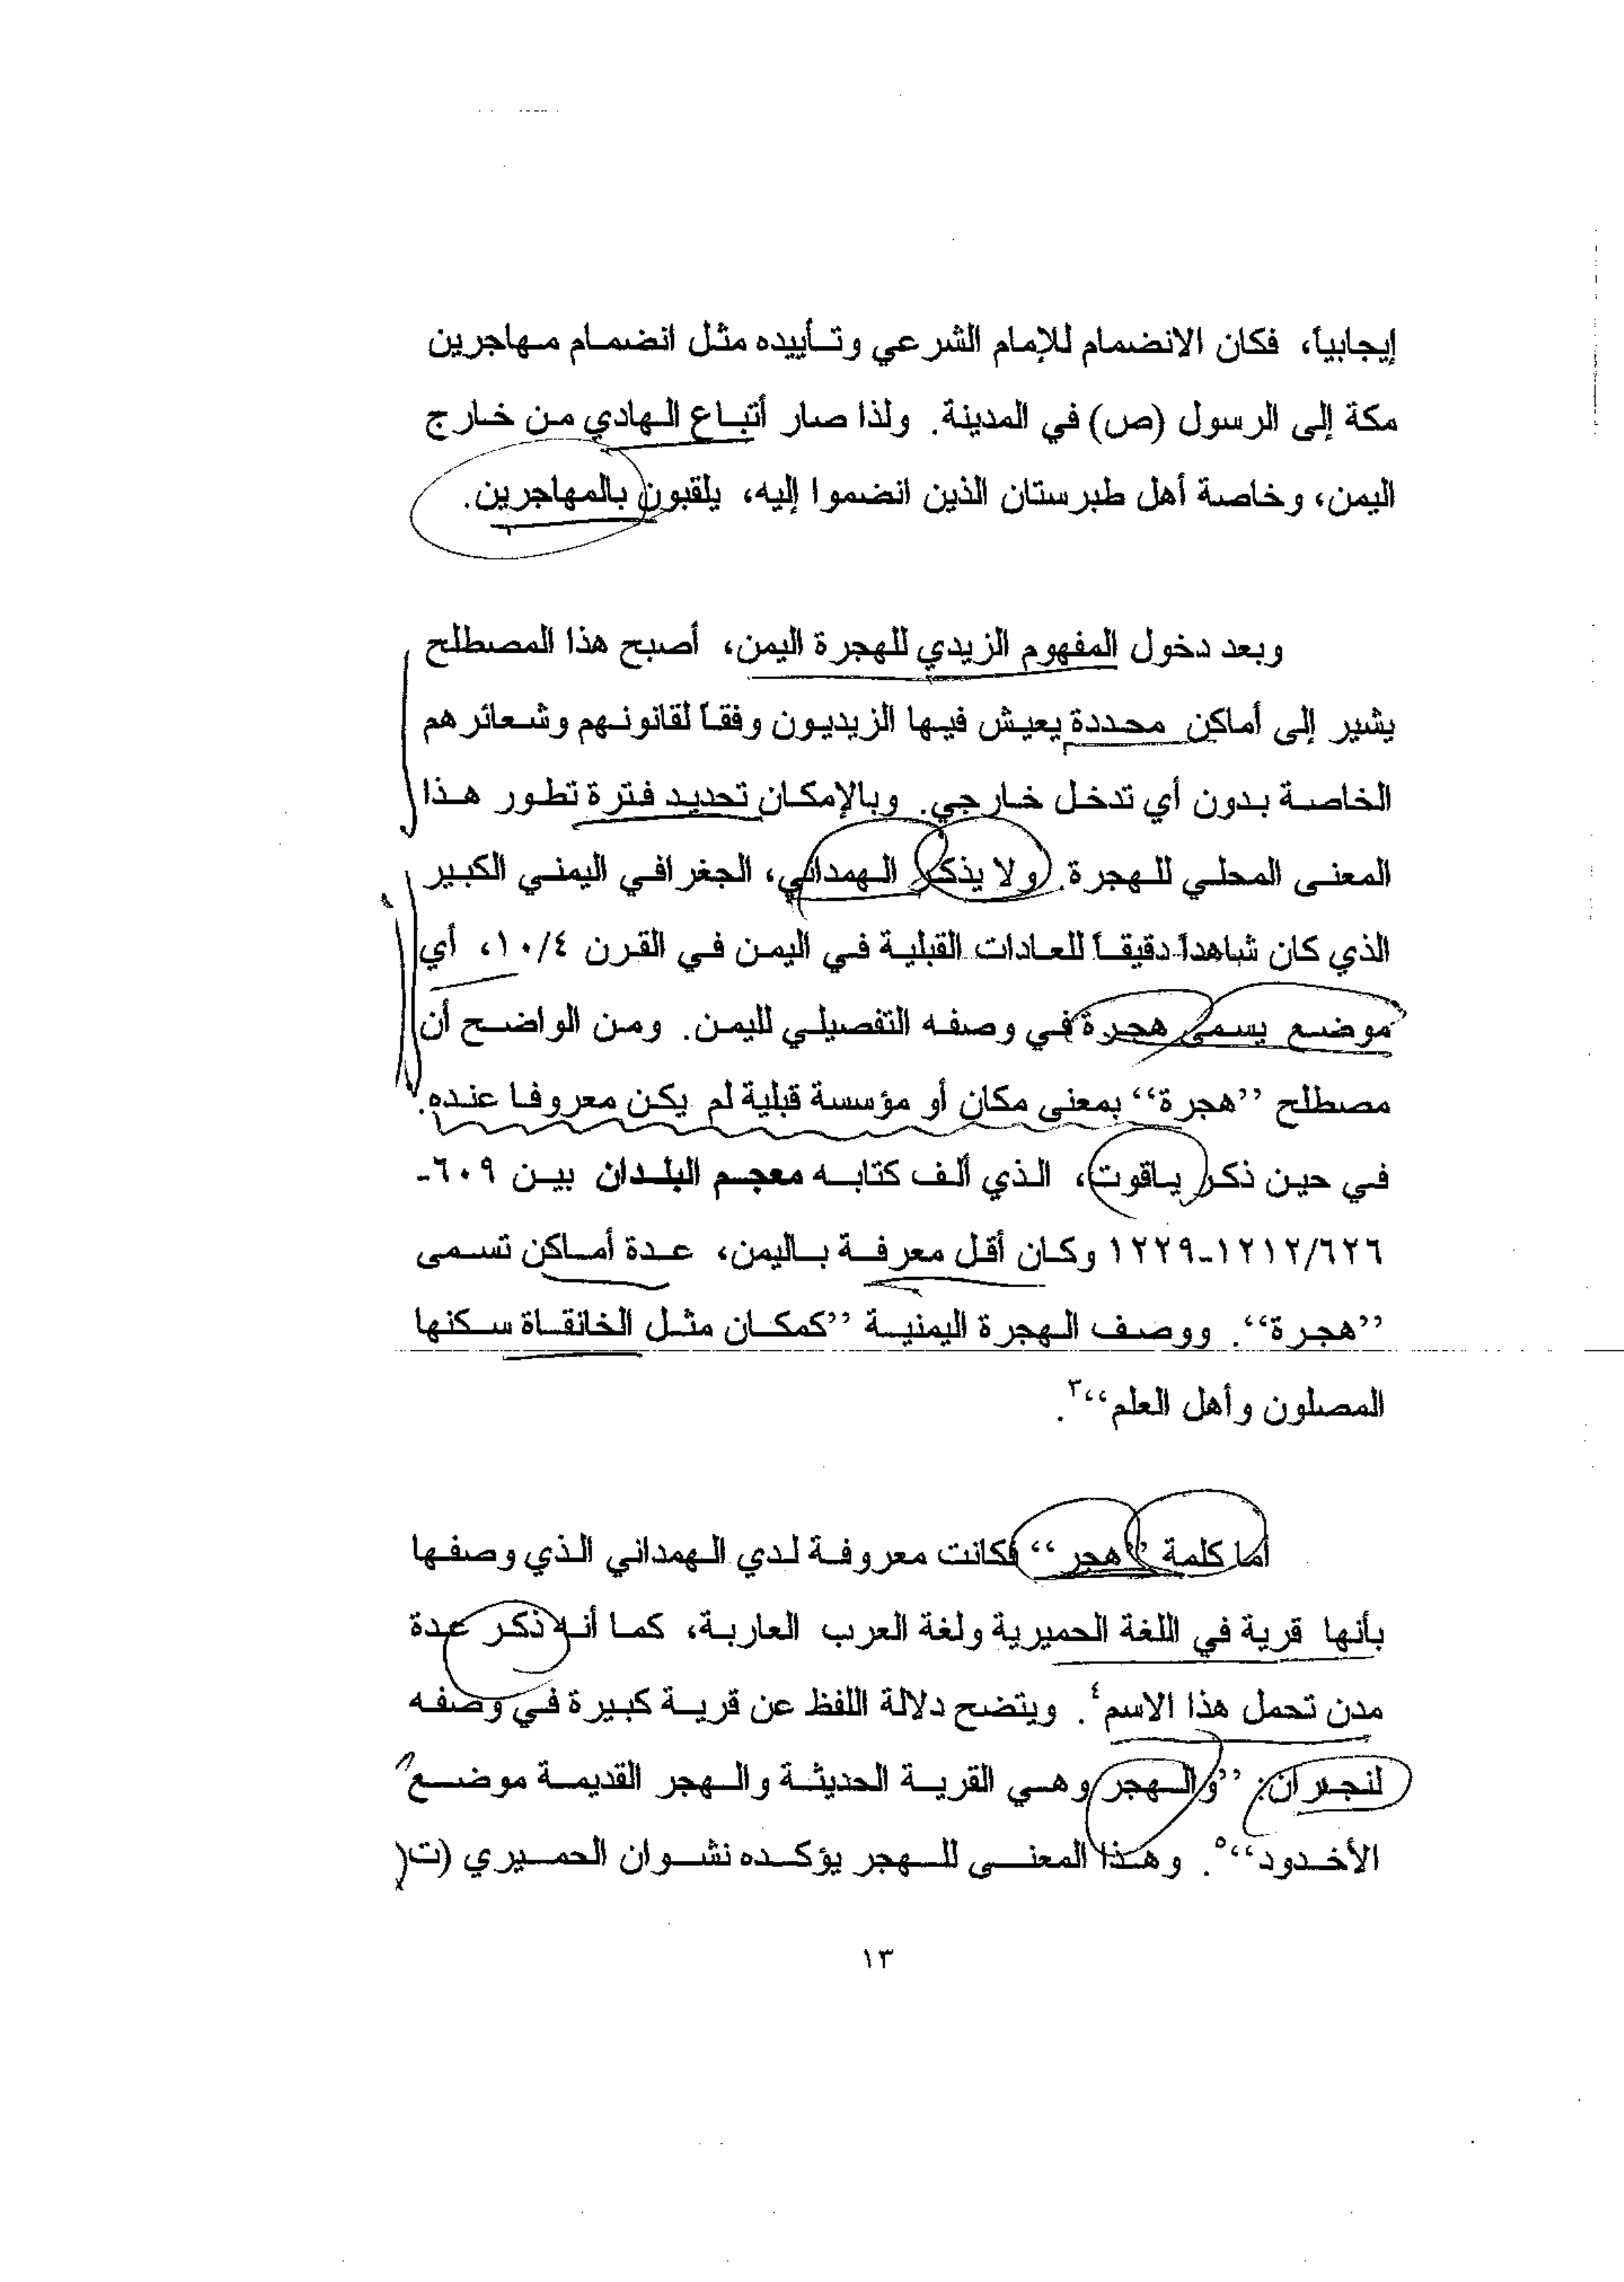 إيجابياً، فكان الانضمام للإمام الشرعي وتأييده مثل انضمام مهاجرين
مكة إلى الرسول (ص) في المدينة. ولذا صار أتباع الهادي من خارج
اليمن، وخاصة أهل طبرستان الذين انضموا إليه، يلقبون بالمهاجرين.
وبعد دخول المفهوم الزيدي للهجرة اليمن، أصبح هذا المصطلح
يشير إلى أماكن محددة يعيش فيها الزيديون وفقاً لقانونهم وشعائرهم
الخاصة بدون أي تدخل خارجي. وبالإمكان تحديد فترة تطور هذا
المعنى المحلي للهجرة. ولا يذكر الهمداني، الجغرافي اليمني الكبير
الذي كان شاهداً دقيقاً للعادات القبلية في اليمن في القرن ١٠/٤، أي
موضع يسمى هجرة في وصفه التفصيلي لليمن. ومن الواضح أن
مصطلح ”هجرة“ بمعنى مكان أو مؤسسة قبلية لم يكن معروفا عنده.
في حين ذكر ياقوت، الذي ألف كتابه معجم البلدان بين ٦٠٩-
١٢٢٩-١٢١٢/٦٢٦ وكان أقل معرفة باليمن، عدة أماكن تسمى
”هجرة“. ووصف الهجرة اليمنية ”كمكان مثل الخانقاة سكنها
المصلون وأهل العلم“٣.
أما كلمة ”هجر“ فكانت معروفة لدي الهمداني الذي وصفها
بأنها قرية في اللغة الحميرية ولغة العرب العاربة، كما أنه ذكر عدة
مدن تحمل هذا الاسم٤. ويتضح دلالة اللفظ عن قرية كبيرة في وصفه
لنجران: ”والهجر وهي القرية الحديثة والهجر القديمة موضع
الأخدود“٥. وهذا المعنى للهجر يؤكده نشوان الحميري (ت
١٣